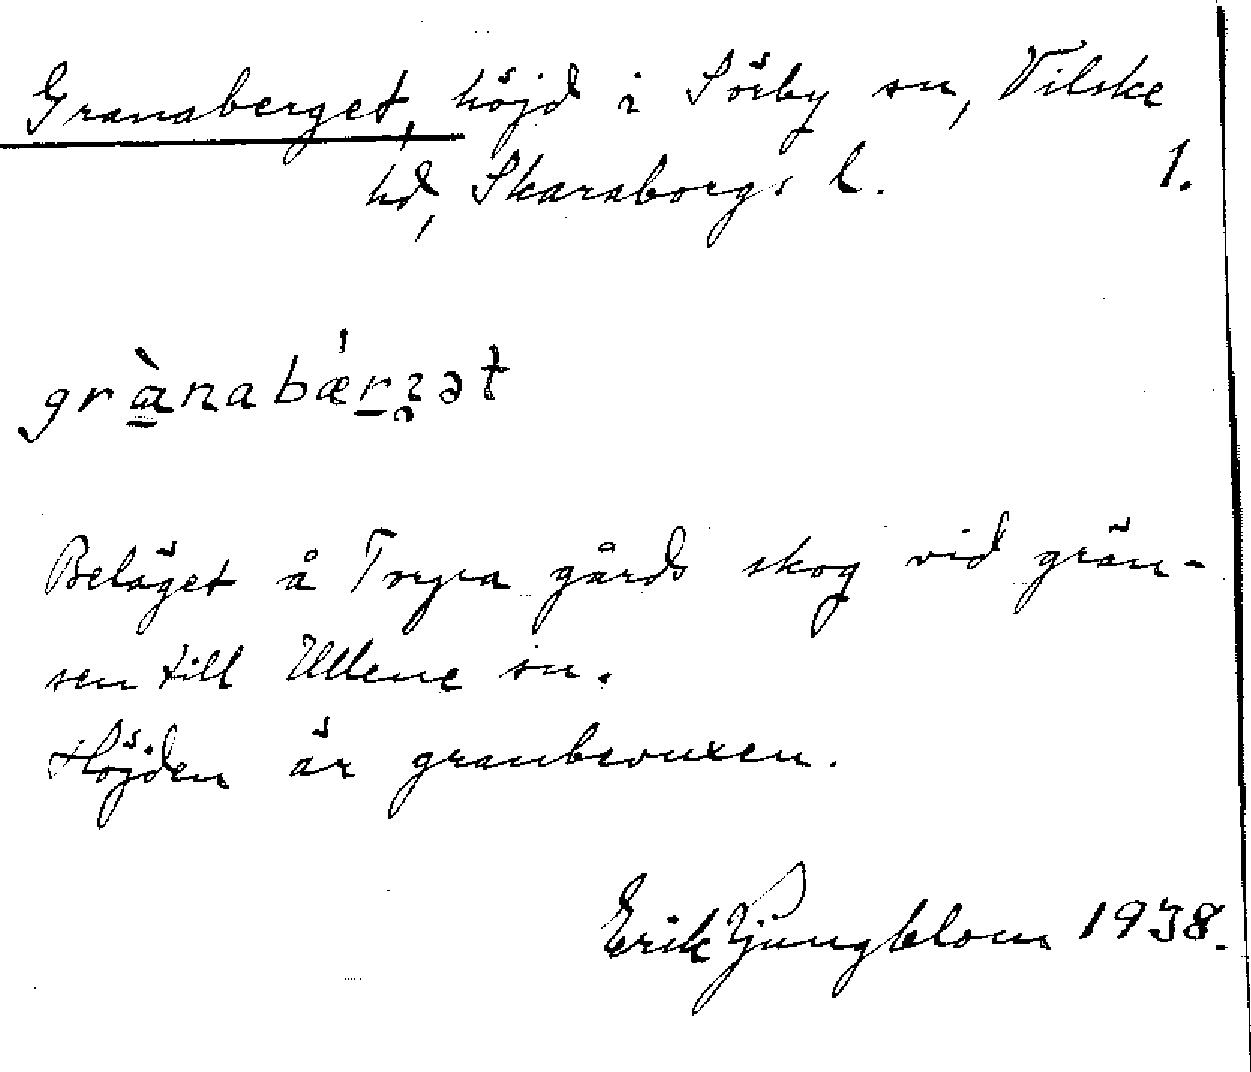 Granaberget, höjd i Sörby sn, Vilske
hd, Skaraborgs l. 1.
grànabǽrʒət
Beläget å Torpa gårds skog vid grän-
sen till Ullene sn.
Höjden är granbevuxen.
Erik Ljungblom 1938.